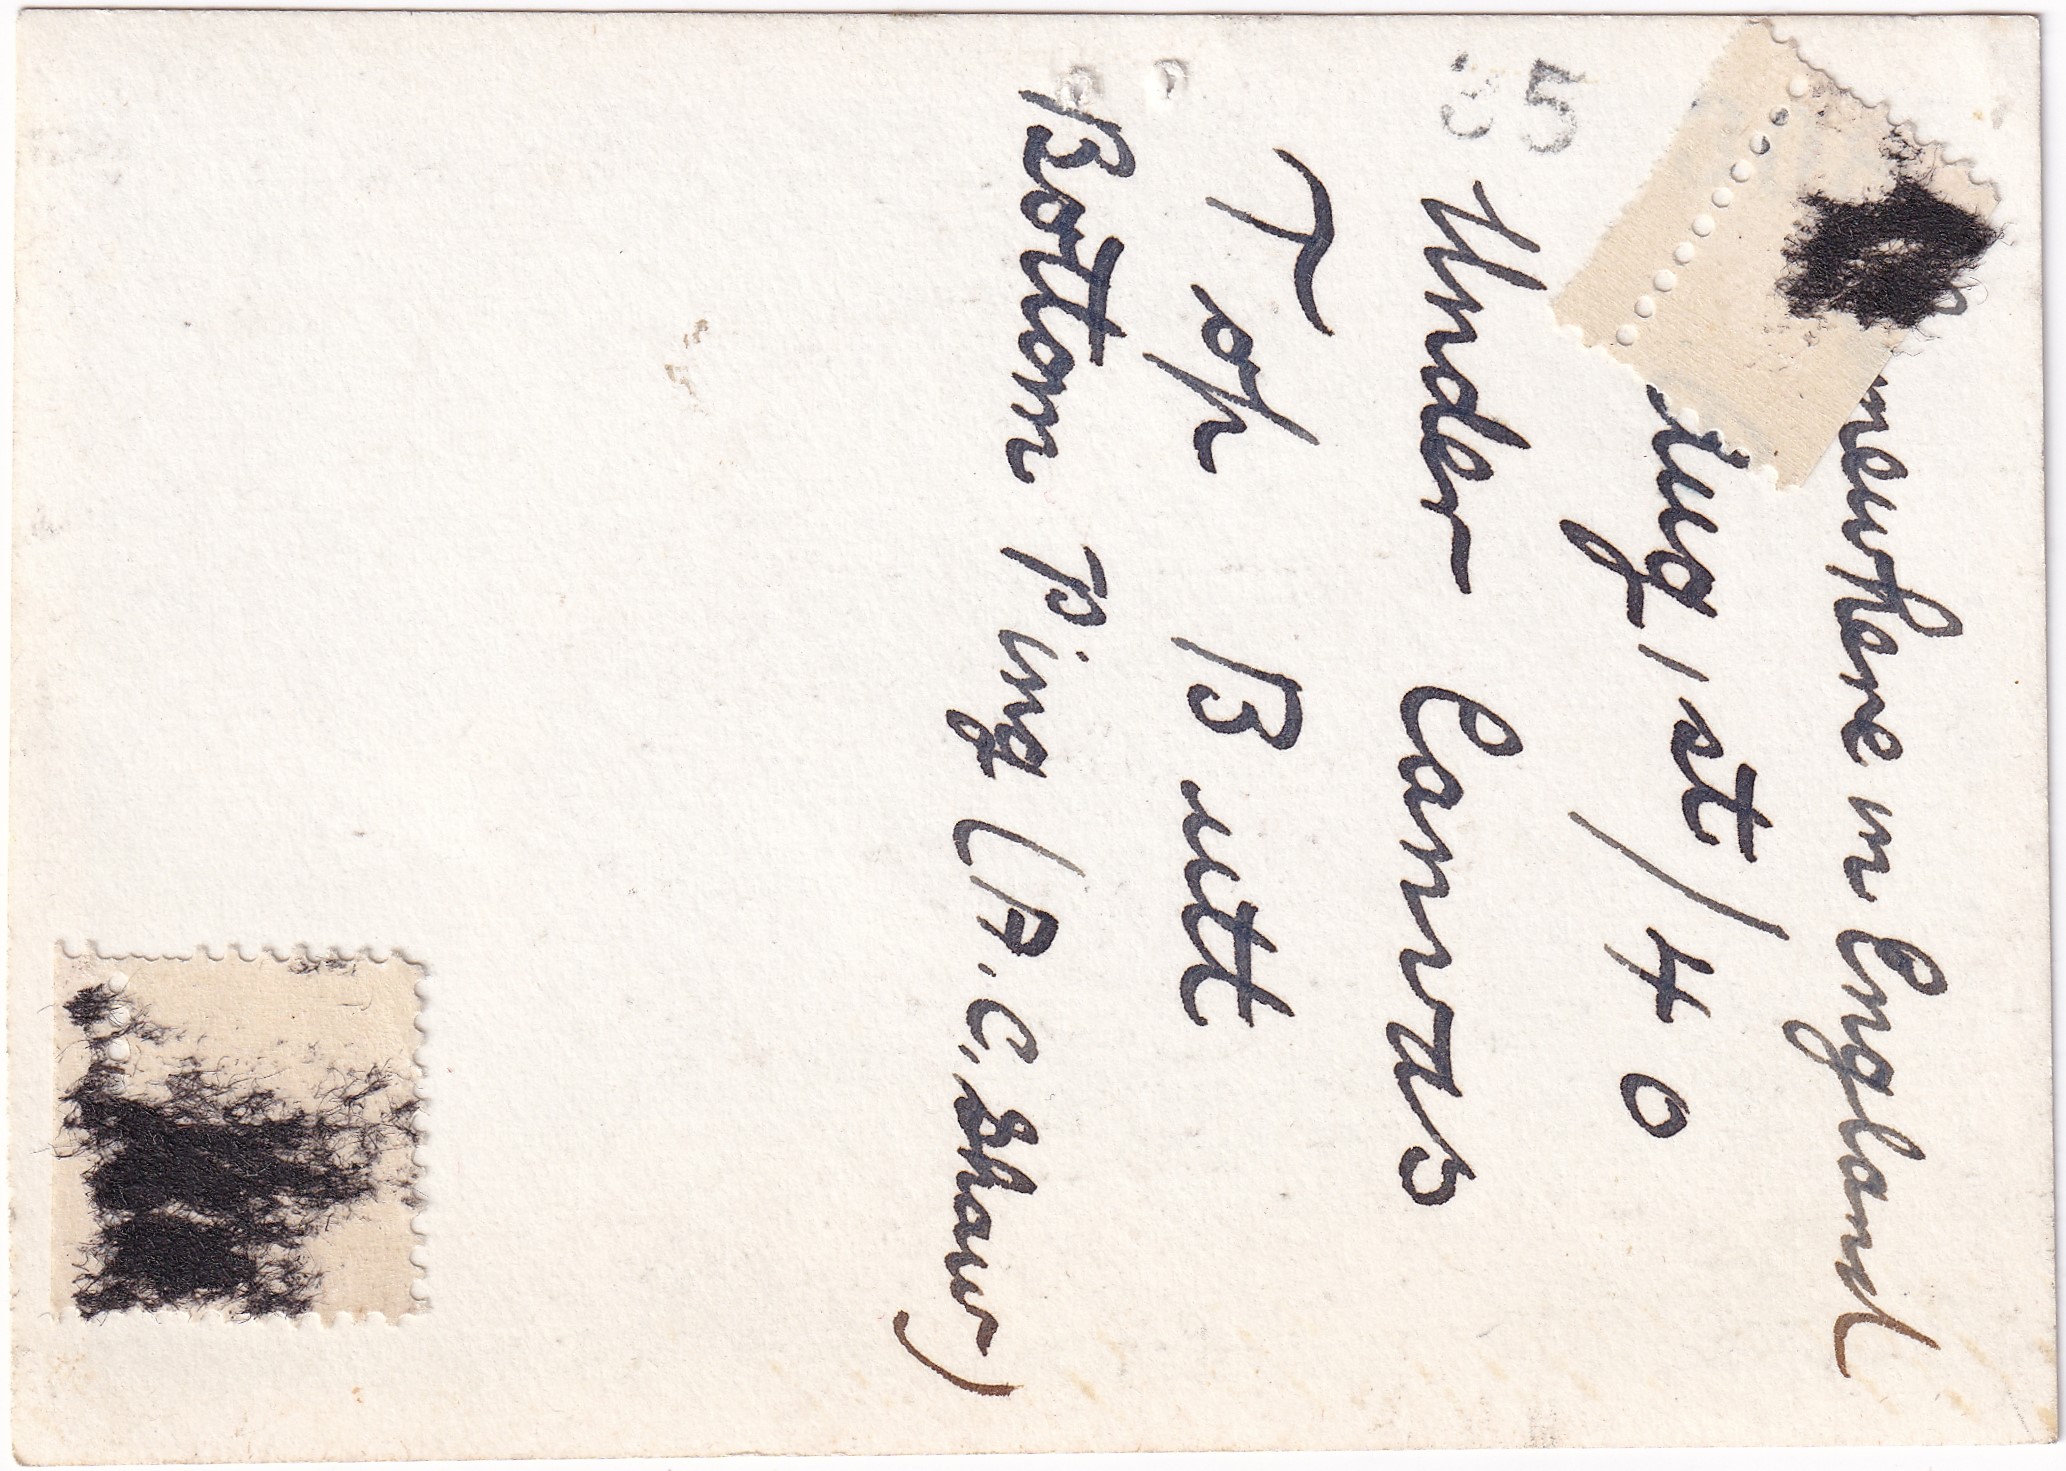 mewhere in England
Aug 1st/40
35
Under Canvas
Top Butt
Bottom Ping (A.C. Shaw)